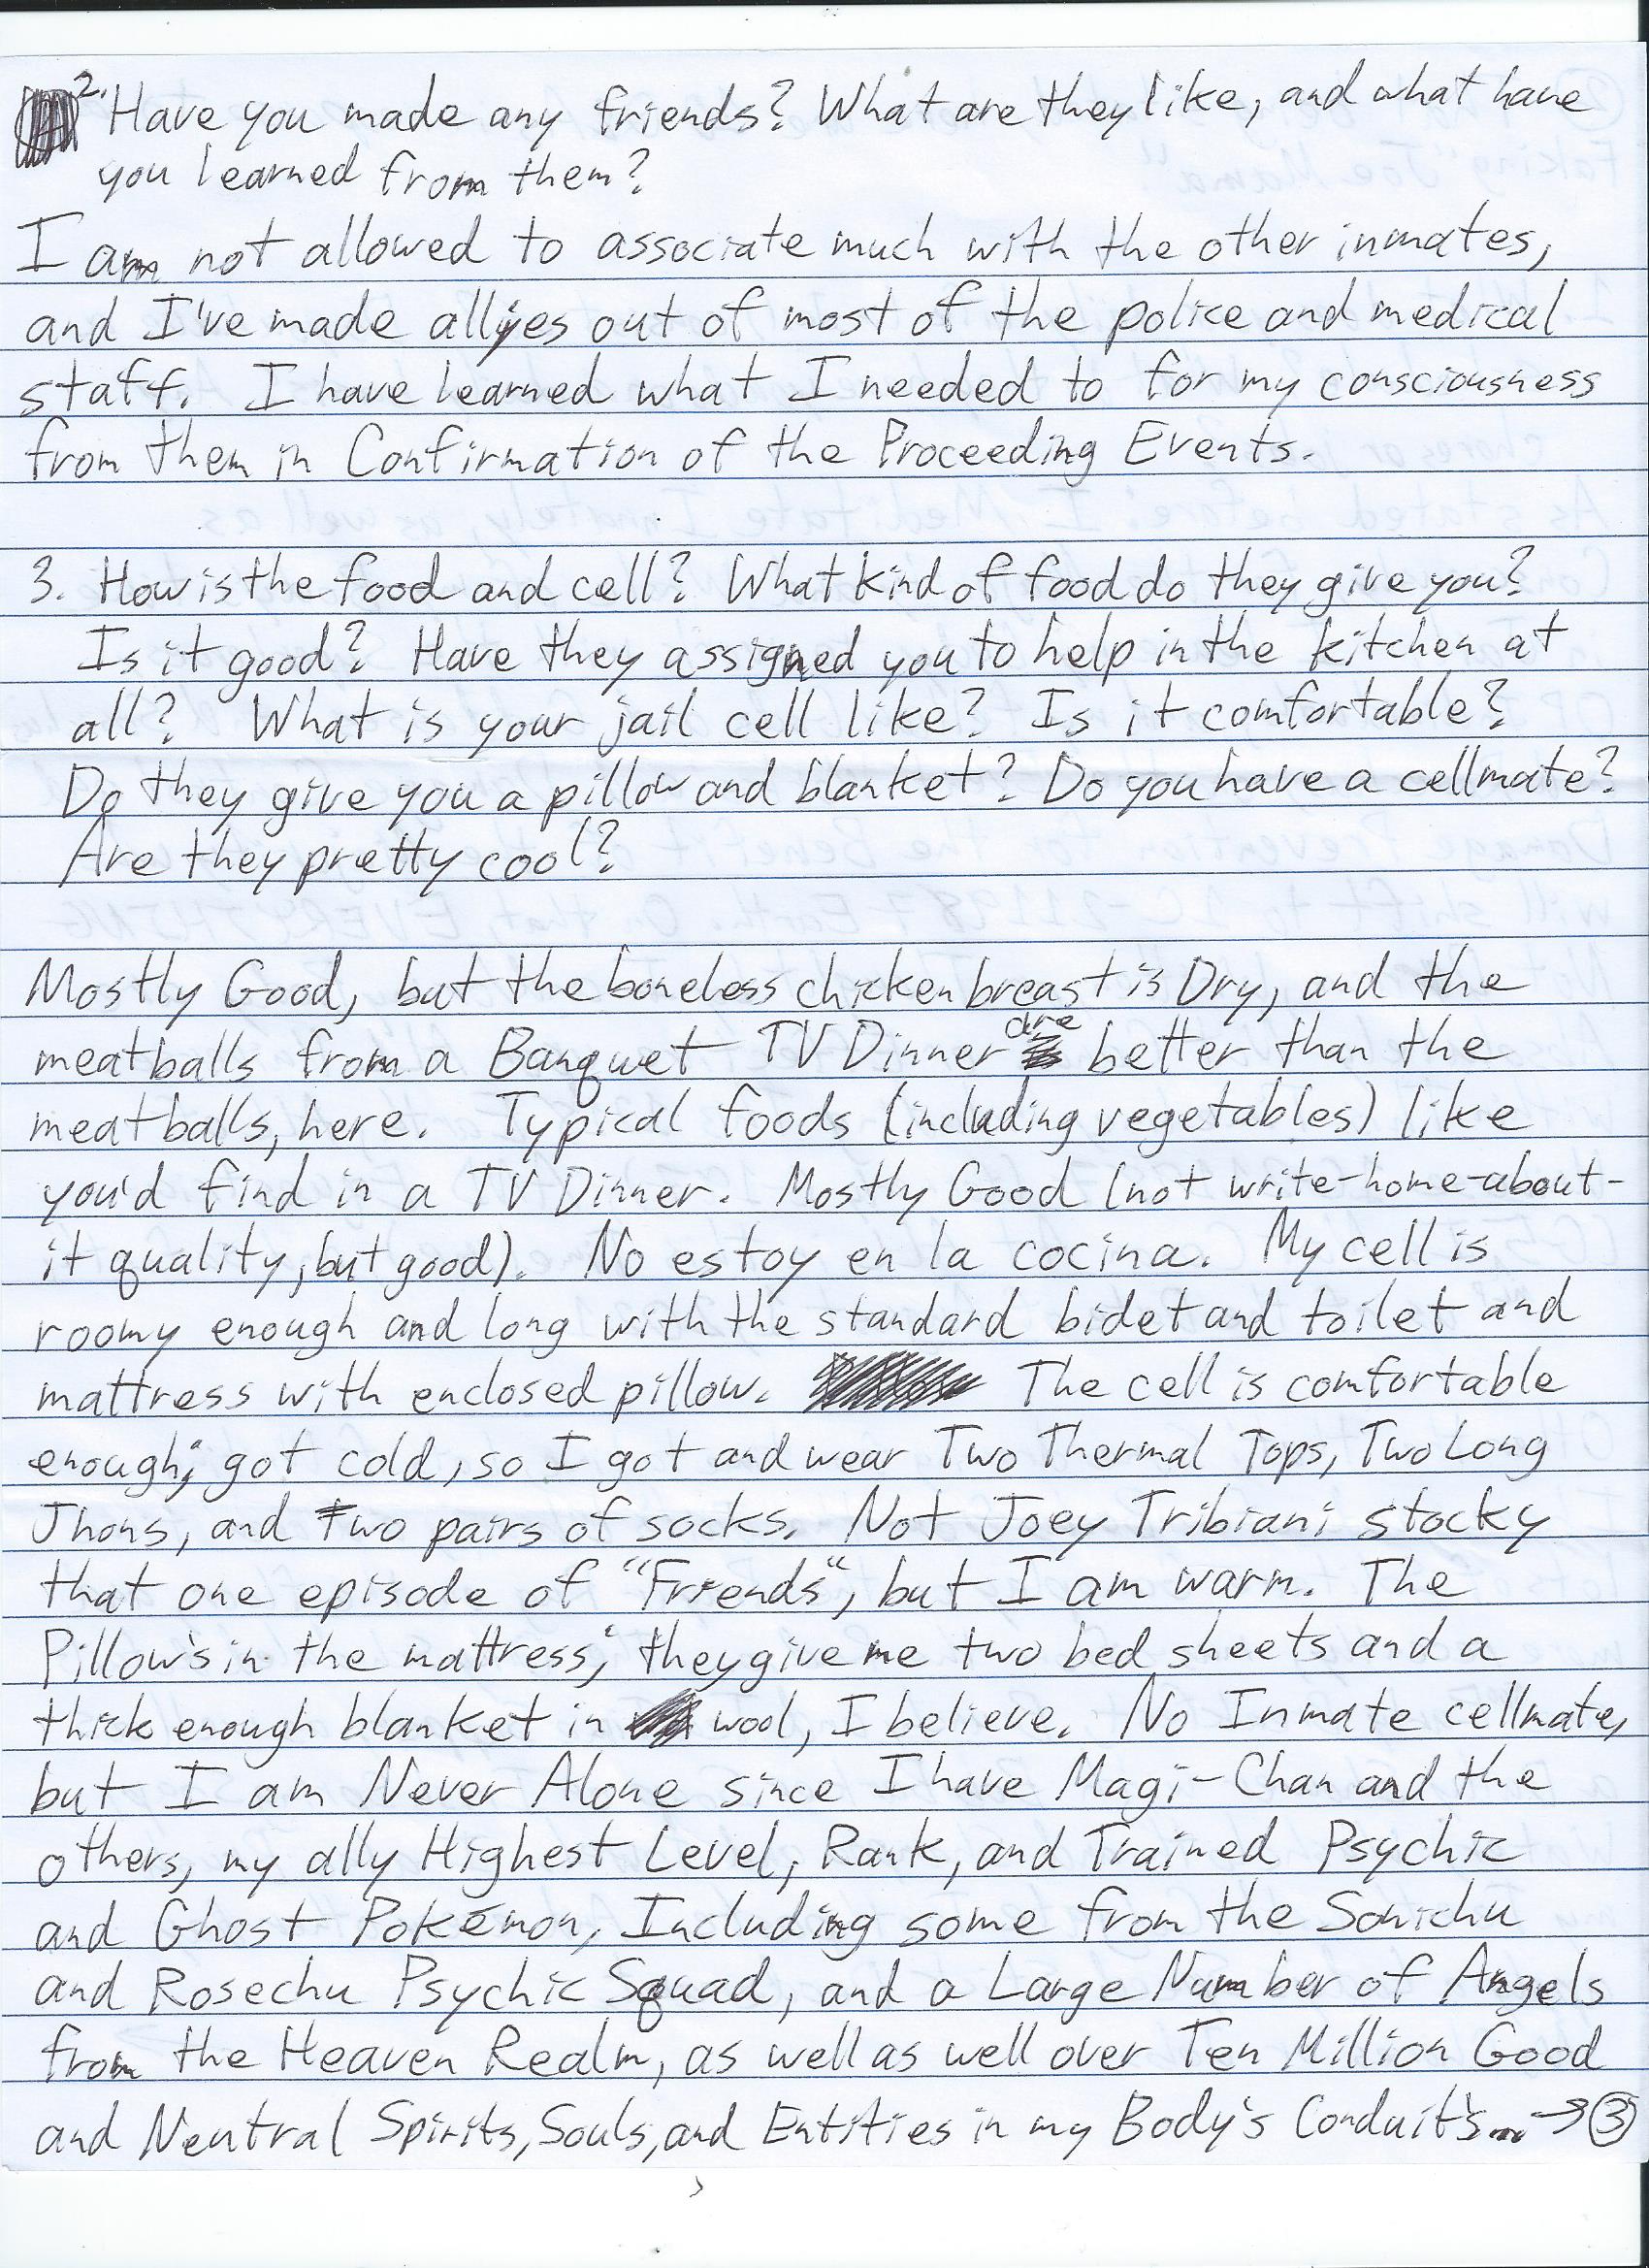 2. Have you made any friends? What are they like, and what have
you learned from them?
I am not allowed to associate much with the other inmates,
and I've made allyes out of most of the police and medical
staff. I have learned what I needed to for my consciousness
from them in Confirmation of the Proceeding Events.
3. How is the food and cell? What kind of food do they give you?
Is it good? Have they assigned you to help in the kitchen at
all? What is your jail cell like? Is it comfortable?
Do they give you a pillow and blanket? Do you have a cellmate?
Are they pretty cool?
Mostly Good, but the boneless chicken breast is Dry, and the
meatballs from a Banquet TV Dinner are better than the
meatballs, here. Typical foods (including vegetables) like
you'd find in a TV Dinner. Mostly Good (not write-home-about-
it quality, but good). No estoy en la cocina. My cell is
roomy enough and long with the standard bidet and toilet and
mattress with enclosed pillow. The cell is comfortable
enough; got cold, so I got and wear Two Thermal Tops, Two Long
Jhons, and two pairs of socks. Not Joey Tribiani stocky
that one episode of "Friends", but I am warm. The
Pillow's in the mattress; they give me two bed sheets and a
thick enough blanket in wool, I believe. No Inmate cellmate,
but I am Never Alone since I have Magi-Chan and the
others, my ally Highest Level, Rank, and Trained Psychic
and Ghost Pokémon, Including some from the Sonichu
and Rosechu Psychic Squad, and a Large Number of Angels
from the Heaven Realm, as well as well over Ten Million Good
and Neutral Spirits, Souls, and Entities in my Body's Conduit's... → 3